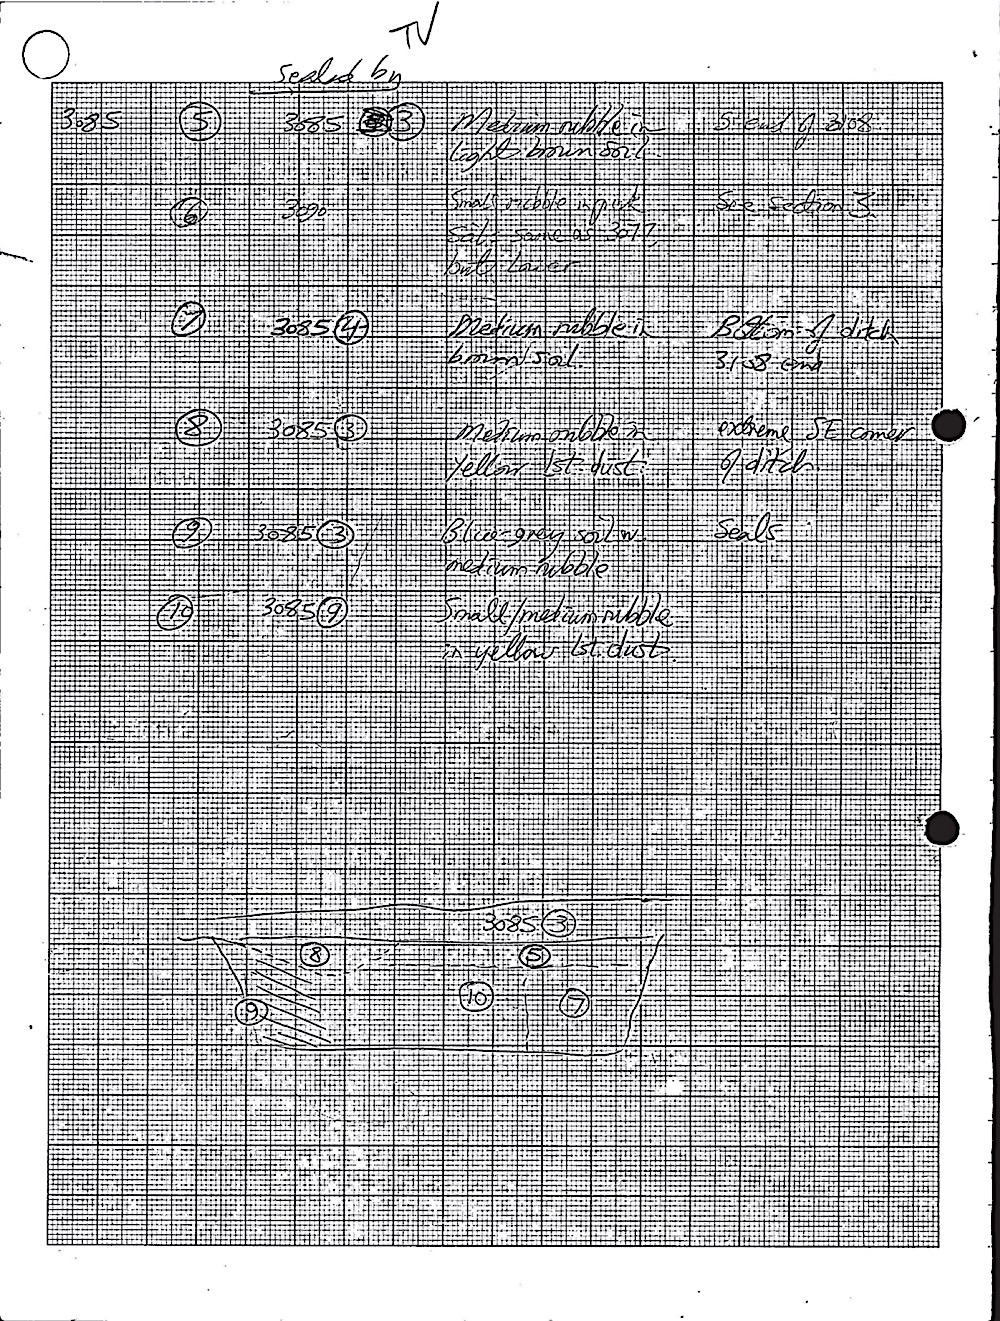 TV
Sealed by
3085 ⑤ 3085 ③ Medium rubble in S. end of 3108
light brown soil.
⑥ 3090 Small rubble in pink See Section 3.
soil - same as 3077,
but lower
⑦ 3085 ④ Medium rubble in Bottom of ditch
brown soil. 3108 end
⑧ 3085 ③ Medium rubble in extreme SE corner
yellow lst. dust. of ditch
⑨ 3085 ③ Blue-grey soil w. Seals
medium rubble
⑩ 3085 ⑨ Small/medium rubble
in yellow lst. dust.
3085 ③
⑧ ⑤
⑩ ⑦
⑨